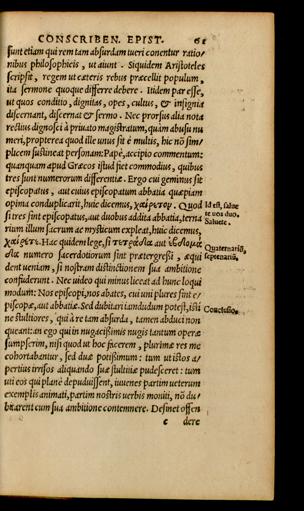 CONSCRIBEN. EPIST. 61
sunt etiam qui rem tam absurdam tueri conentur ratio/
nibus philosophicis, ut aiunt. Siquidem Aristoteles
scripsit, regem ut cæteris rebus præcellit populum,
ita sermone quoque differre debere. Itidem par esse,
ut quos conditio, dignitas, opes, cultus, & insignia
discernant, discernat & sermo. Nec prorsus alia nota
rectius dignosci à priuato magistratum, quàm abusu nu
meri, propterea quod ille unus sit è multis, hic nõ sim/
plicem sustineat personam: Papè, accipio commentum:
quanquam apud Græcos istud fiet commodius, quibus
tres sunt numerorum differentiæ. Ergo cui geminus sit
episcopatus, aut cuius episcopatum abbatia quæpiam
opima conduplicarit, huic dicemus, χαίρετον. Quod
si tres sint episcopatus, aut duobus addita abbatia, terna
rium illum sacrum ac mysticum expleat, huic dicemus,
χαίρετε. Hac quidem lege, si τετράδα aut ἑβδομά
δα numero sacerdotiorum sint prætergressi, æqui
dent ueniam, si nostram distinctionem sua ambitione
confuderunt. Nec uideo qui minus liceat ad hunc loqui
modum: Nos episcopi, nos abates, cui uni plures sint e/
piscopæ, aut abbatiæ. Sed dubitari iamdudum potest, isti
ne stultiores, qui à re tam absurda, tamen abduci non
queant: an ego qui in nugacissimis nugis tantum operæ
sumpserim, nisi quod ut hoc facerem, plurimæ res me
cohortabantur, sed duæ potissimum: tum ut istos a/
pertius irrisos aliquando suæ stultitiæ pudesceret: tum
uti eos qui planè depuduissent, iuuenes partim ueterum
exemplis animati, partim nostris uerbis moniti, nõ du/
bitarent cum sua ambitione contemnere. Desinet offen
e dere
Id est, salue
te uos duo.
Saluete.
Quaternariũ,
septenariũ.
Conclusio.